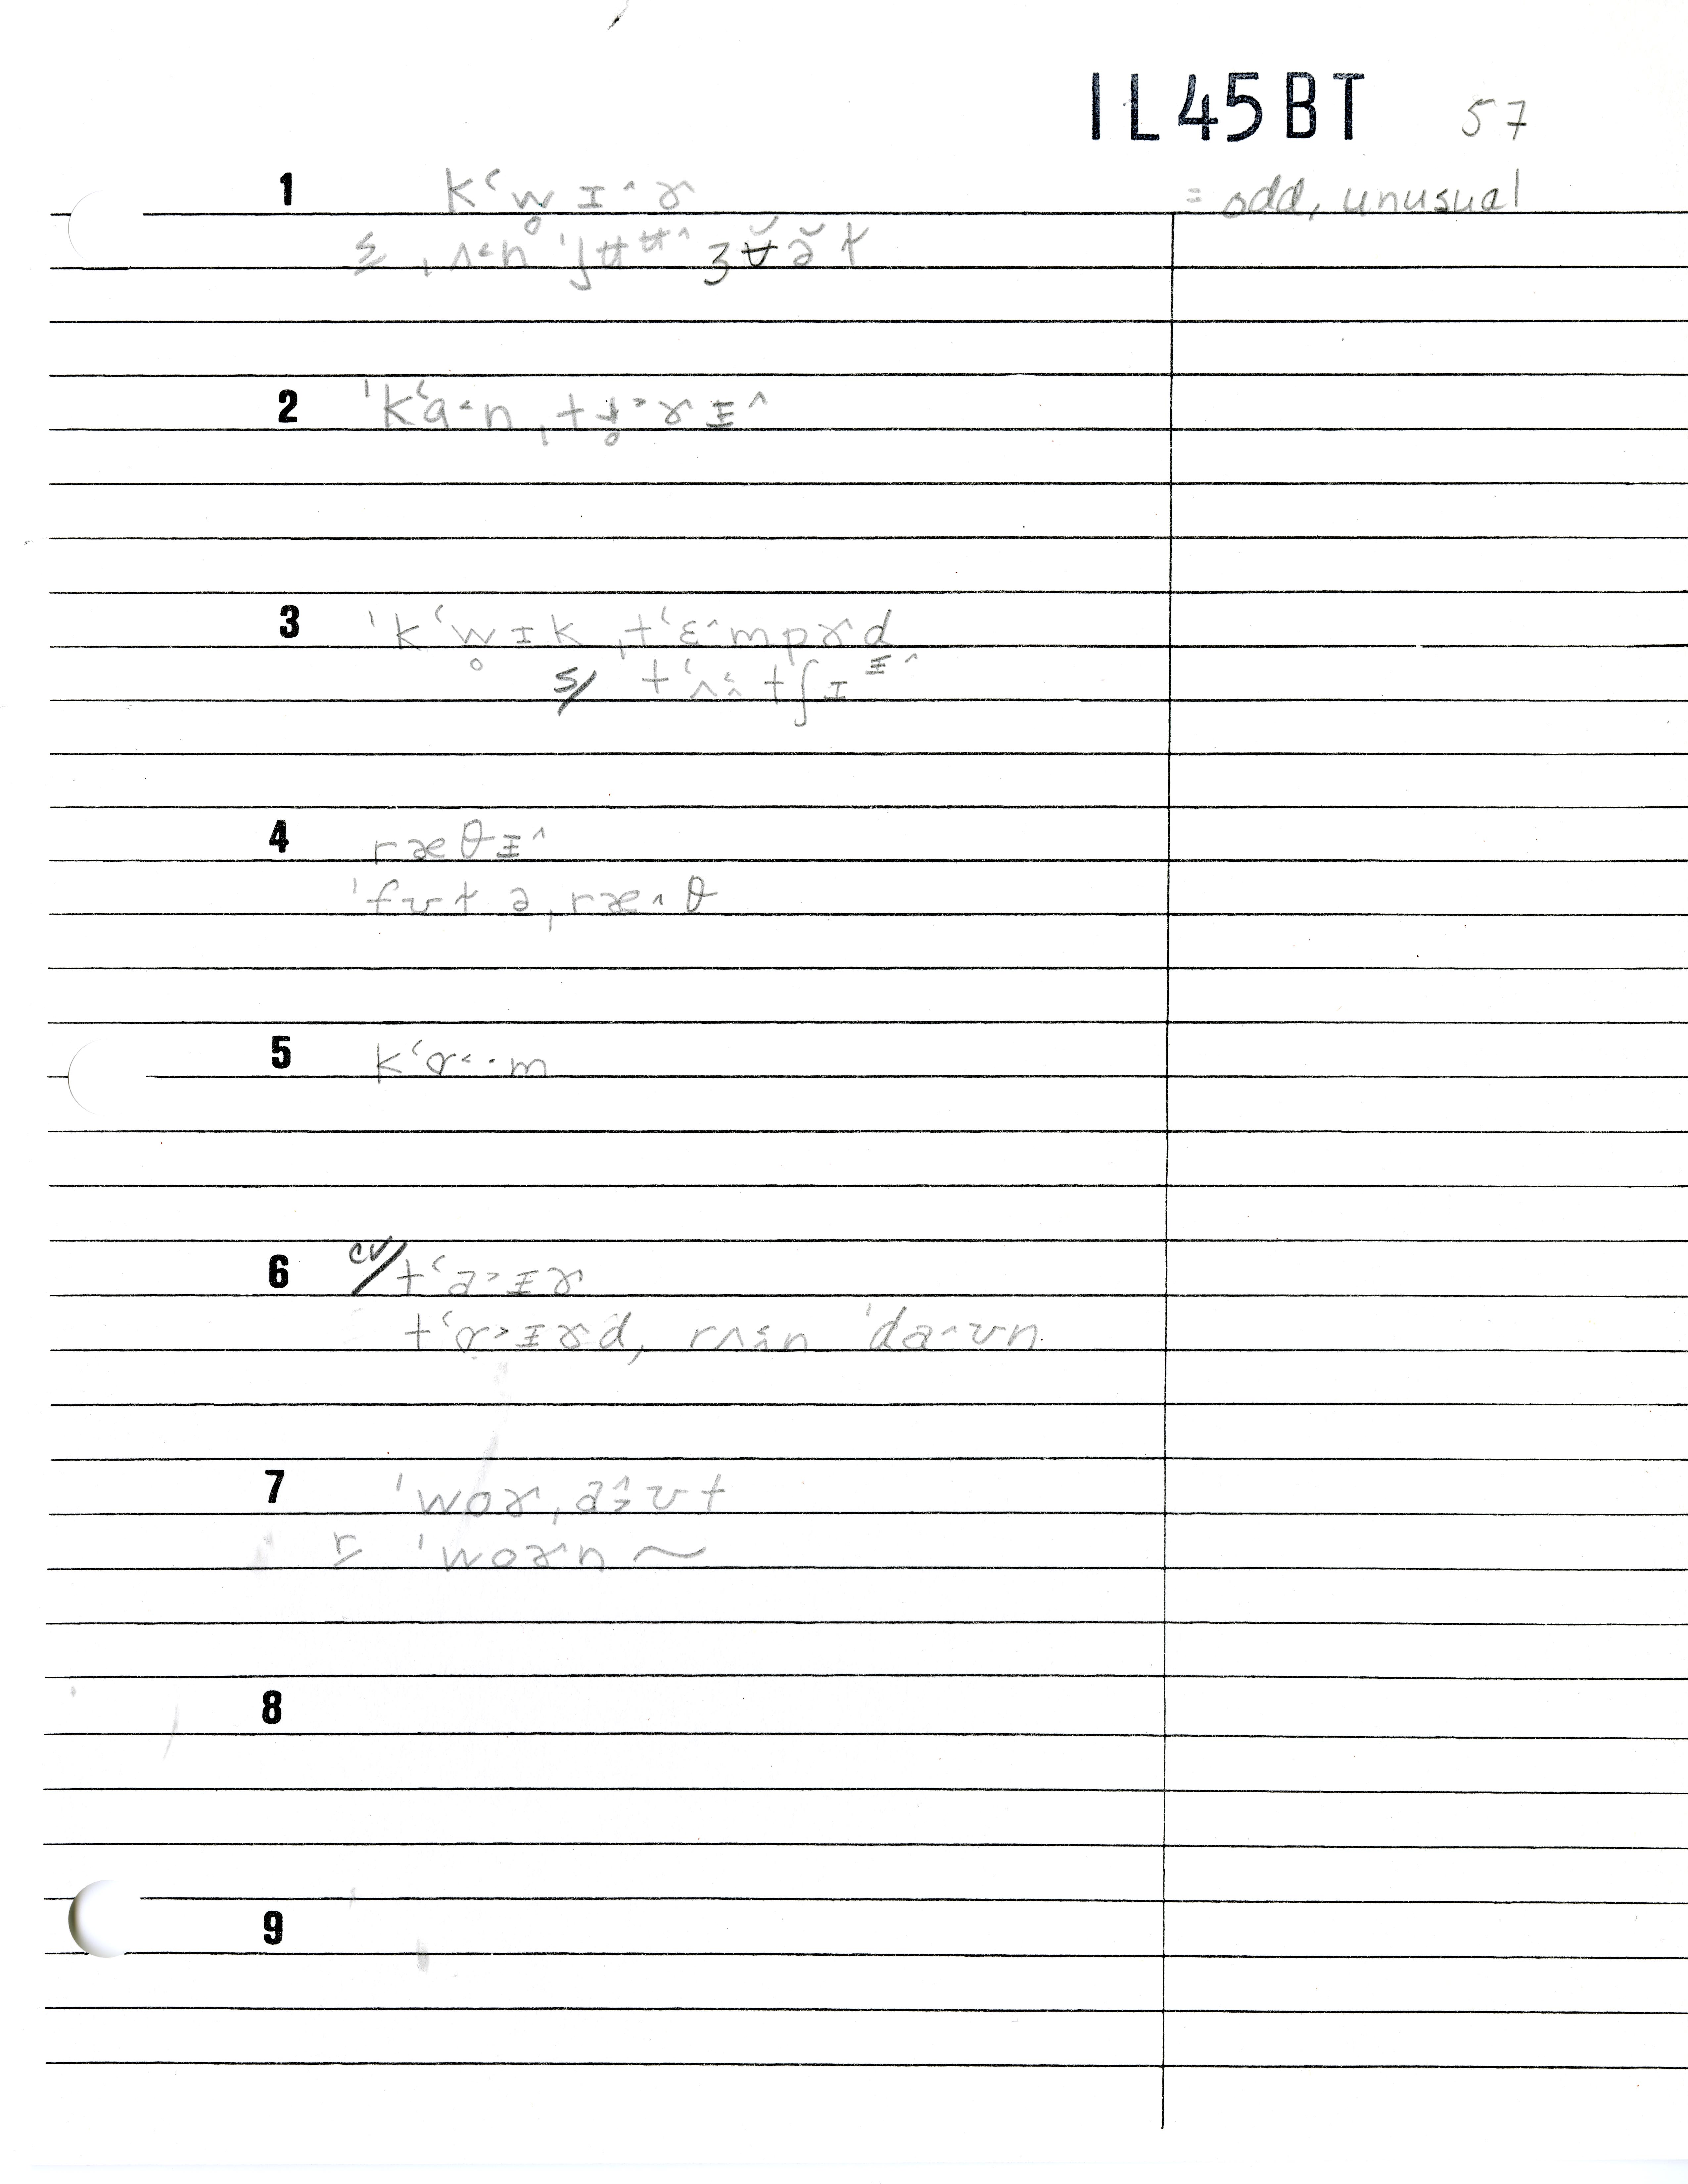 IL45BT 57
1 kʻw̥ɪ˄ɚ = odd, unusual
s̲ ˌʌ˂n ˈʃʉʉ˄ ʒʉ̆ə̆ɫ
2 ˈkʻɑ˂n ˌtɹ̥˃ɚɪ˄
3 ˈkʻw̥ɪk ˌtʻɛ˄mpɚd
s/ tʻʌɪtʃɪɪ˄
4 ræθɪ˄
ˈfʊɫ ə ˌræ˄θ
5 kʻɑ˂·m
6 cv/ tʻa˃ɪɚ
tʻɑ˃ɪɚd, rʌɪn ˈda˄ʊn
7 ˈwoɚ ˌa˃ʊt
r̲ ˈwoɚn ~
8
9